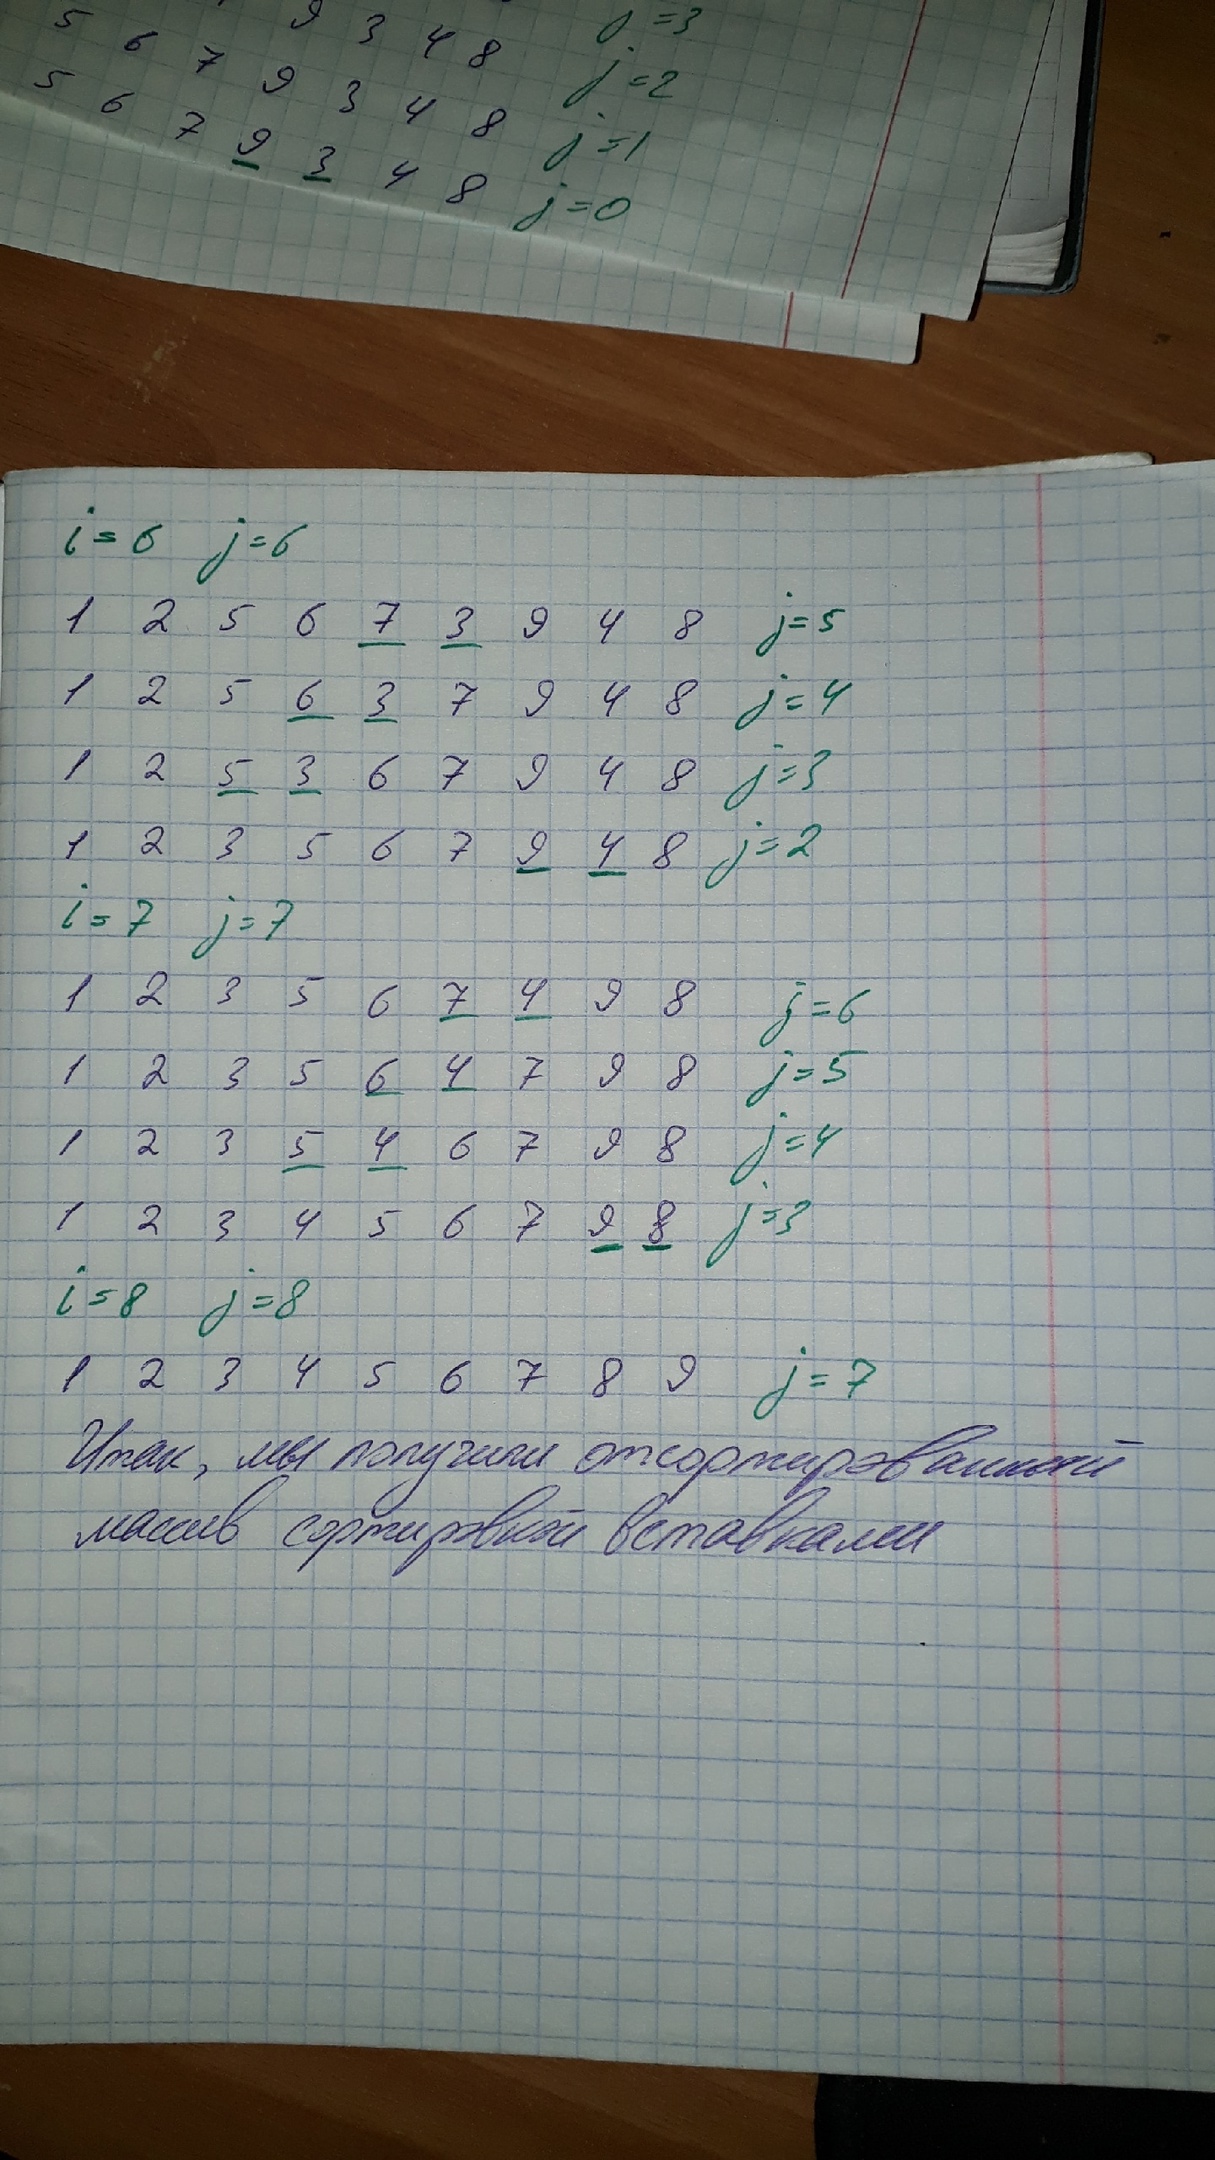 5 9 3 4 8 j=3
6 7 9 3 4 8 j=2
5 6 7 9 3 4 8 j=1
j=0
i=6 j=6
1 2 5 6 7 3 9 4 8 j=5
1 2 5 6 3 7 9 4 8 j=4
1 2 5 3 6 7 9 4 8 j=3
1 2 3 5 6 7 9 4 8 j=2
i=7 j=7
1 2 3 5 6 7 4 9 8 j=6
1 2 3 5 6 4 7 9 8 j=5
1 2 3 5 4 6 7 9 8 j=4
1 2 3 4 5 6 7 9 8 j=3
i=8 j=8
1 2 3 4 5 6 7 8 9 j=7
Итак, мы получили отсортированный
массив сортировкой вставками